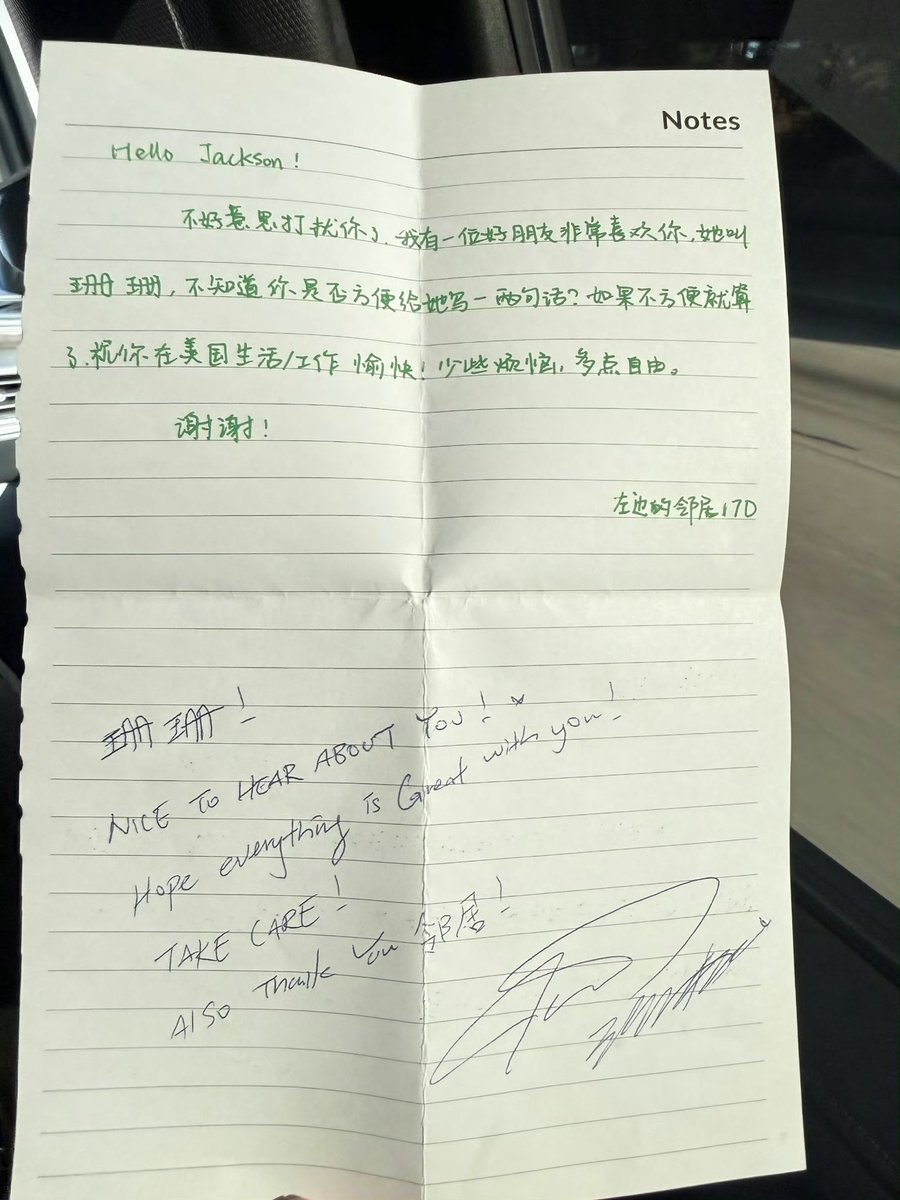 Notes
Hello Jackson!
不好意思打扰你了.我有一位好朋友非常喜欢你,她叫
珊珊,不知道你是否方便给她写一两句话?如果不方便就算
了.祝你在美国生活/工作愉快!少些烦恼,多点自由。
谢谢!
左边的邻居17D
珊珊!
NICE TO HEAR ABOUT YOU!
Hope everything is Great with you!
TAKE CARE!
Also Thank You 邻居!